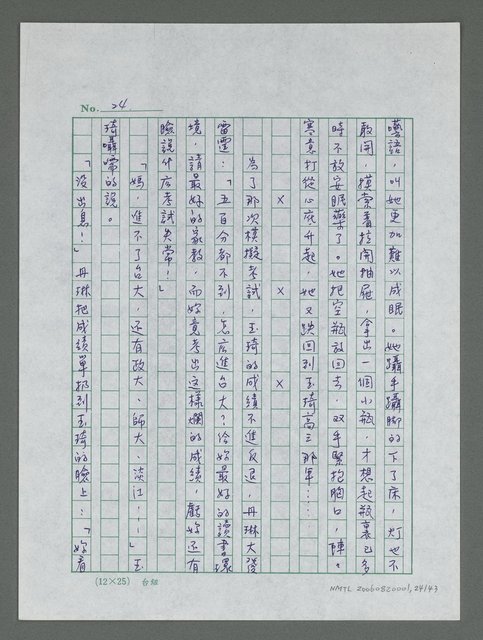 No. 24
囈語,叫她更加難以成眠。她躡手躡腳的下了床,燈也不
敢開,摸索着拉開抽屜,拿出一個小瓶,才想起瓶裏已多
時不放安眠藥了。她把空瓶放回去,双手緊抱胸口,陣〻
寒意打從心底升起,她又跌回到玉琦高三那年……
× × ×
為了那次模擬考試,玉琦的成績不進反退,丹琳大發
雷霆:「五百分都不到,怎麼進台大?給妳最好的讀書環
境,請最好的家教,而妳竟考出這樣爛的成績,虧妳还有
臉說什麼考試失常!」
「媽,進不了台大,还有政大、師大、淡江……」玉
琦囁嚅的說。
「沒出息!」丹琳把成績單扔到玉琦的臉上:「妳看
(12×25) 台組
NMTL 20060820001,24/43